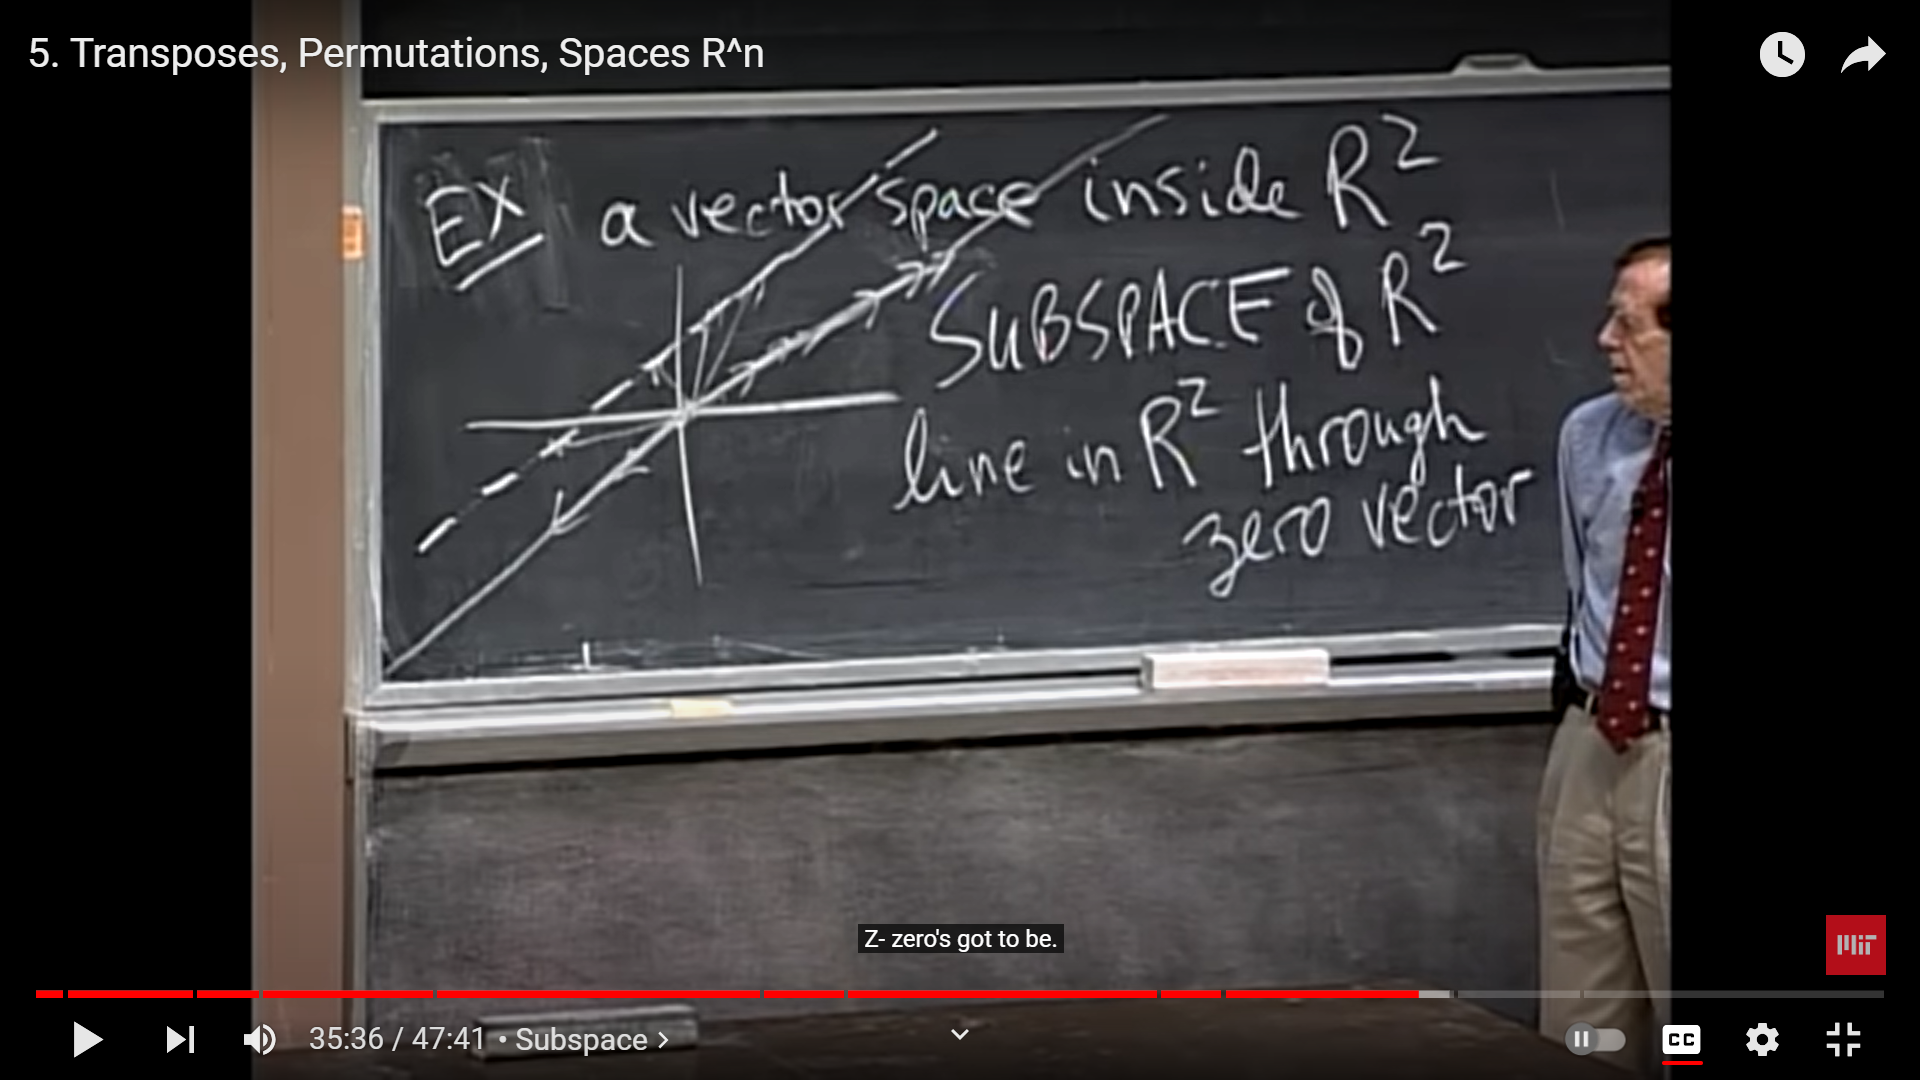 5. Transposes, Permutations, Spaces R^n
EX a vector space inside R²
SUBSPACE of R²
line in R² through
zero vector
Z- zero's got to be.
MIT
35:36 / 47:41 • Subspace >
CC